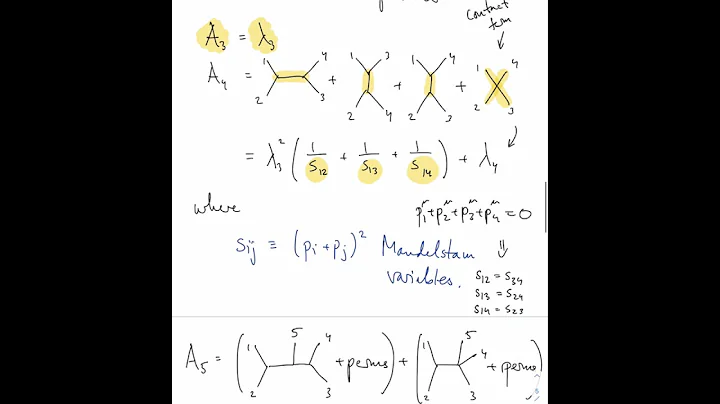 contact
term
A₃ = λ₃
A₄ = 1 2 4 3 + 1 3 2 4 + 1 4 2 3 + 1 4 2 3
= λ₃² ( 1/S₁₂ + 1/S₁₃ + 1/S₁₄ ) + λ₄
where p₁^μ + p₂^μ + p₃^μ + p₄^μ = 0
Sij ≡ (pi + pj)² Mandelstam
variables.
S₁₂ = S₃₄
S₁₃ = S₂₄
S₁₄ = S₂₃
A₅ = ( 1 2 5 4 3 + perms ) + ( 1 2 5 4 3 + perms )